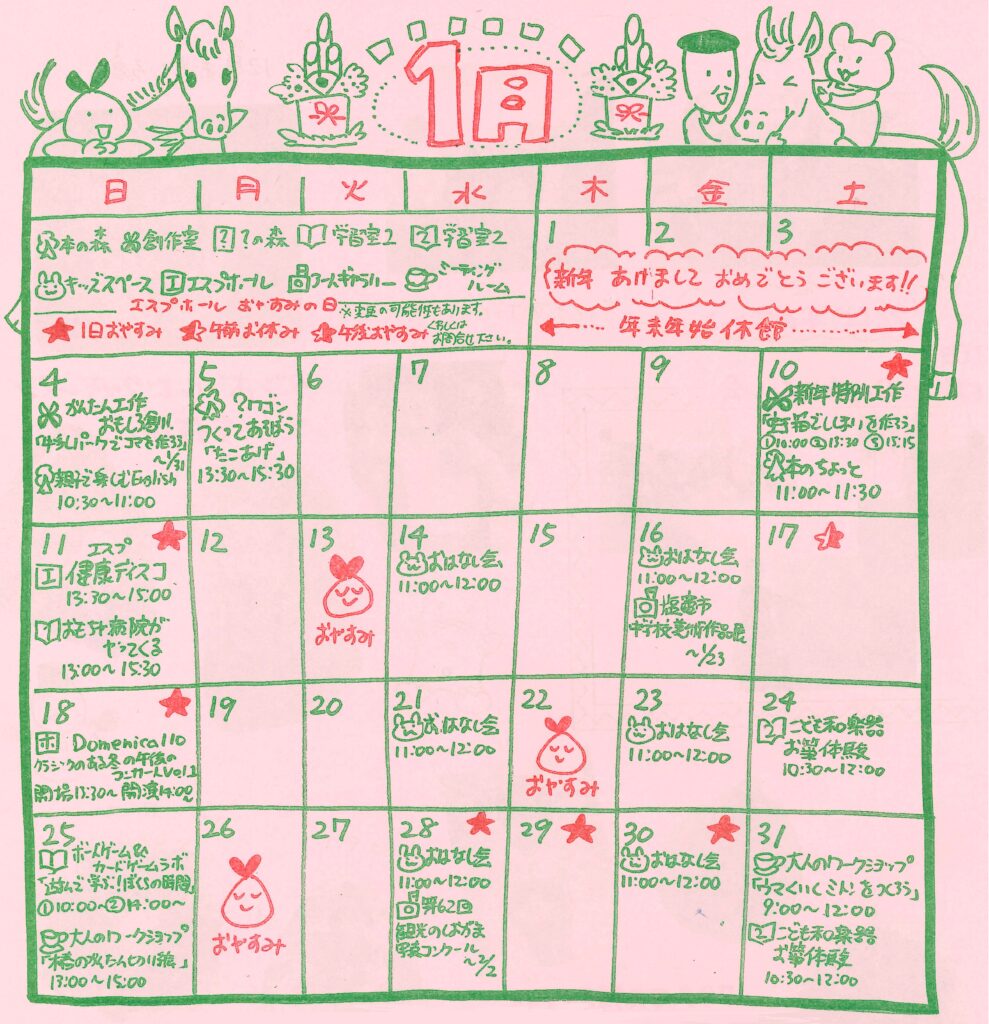 1月
日 月 火 水 木 金 土
本の森 創作室 ? ?の森 学習室1 2 学習室2
キッズスペース エ エスプホール アートギャラリー ミーティングルーム
エスプホール おやすみの日 ※変更の可能性もあります。
★1日おやすみ 午前お休み 午後おやすみ くわしくは
お問合せ下さい。
1 2 3
新年 あけまして おめでとう ございます!!
年末年始休館
4
かんたん工作
おもしろ
コマを作ろう」
~1/31
親子で楽しむEnglish
10:30~11:00
5
?ワゴン
つくってあそぼう
「たこあげ」
13:30~15:30
6
7
8
9
10
新年特別工作
ししまいを作ろう」
①10:00 ②13:30 ③15:15
本のちょっと
11:00~11:30
11
エスプ
エ 健康ディスコ
13:30~15:00
おもちゃ病院が
やってくる
13:00~15:30
12
13
おやすみ
14
おはなし会
11:00~12:00
15
16
おはなし会
11:00~12:00
塩竈市
中学校美術作品展
~1/23
17
18
ホ Domenica110
クラシックのある冬の午後の
コンサート
開場13:30~ 開演14:00~
19
20
21
おはなし会
11:00~12:00
22
おやすみ
23
おはなし会
11:00~12:00
24
2 こども和楽器
お箏体験
10:30~12:00
25
ボードゲーム&
カードゲームラボ
「遊んで学ぶ!ぼくらの時間」
①10:00~②14:00~
大人のワークショップ
13:00~15:00
26
おやすみ
27
28
おはなし会
11:00~12:00
第62回
観光のしおがま
写真コンクール
~2/2
29
30
おはなし会
11:00~12:00
31
大人のワークショップ
をつくろう」
9:00~12:00
2 こども和楽器
お箏体験
10:30~12:00